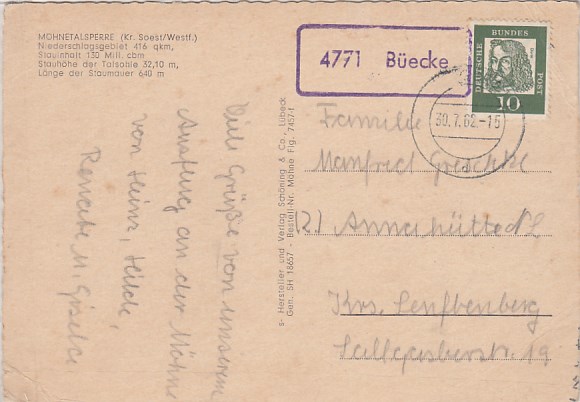 MÖHNETALSPERRE (Kr. Soest/Westf.)
Niederschlagsgebiet 416 qkm,
Stauinhalt 130 Mill. cbm
Stauhöhe der Talsohle 32,10 m,
Länge der Staumauer 640 m
4771 Büecke
DEUTSCHE BUNDES POST
10
30.7.62.-15
Viele Grüße von unserem
Ausflug an der Möhne
von Heinz, Hilde,
Renate u. Gisela
s- Hersteller und Verlag Schöning & Co., Lübeck
Gen. SH 18657 - Bestell-Nr. Möhne Fig. 7457-f
Familie
Manfred
(2) Annahütte N/L
Krs. Senftenberg
19